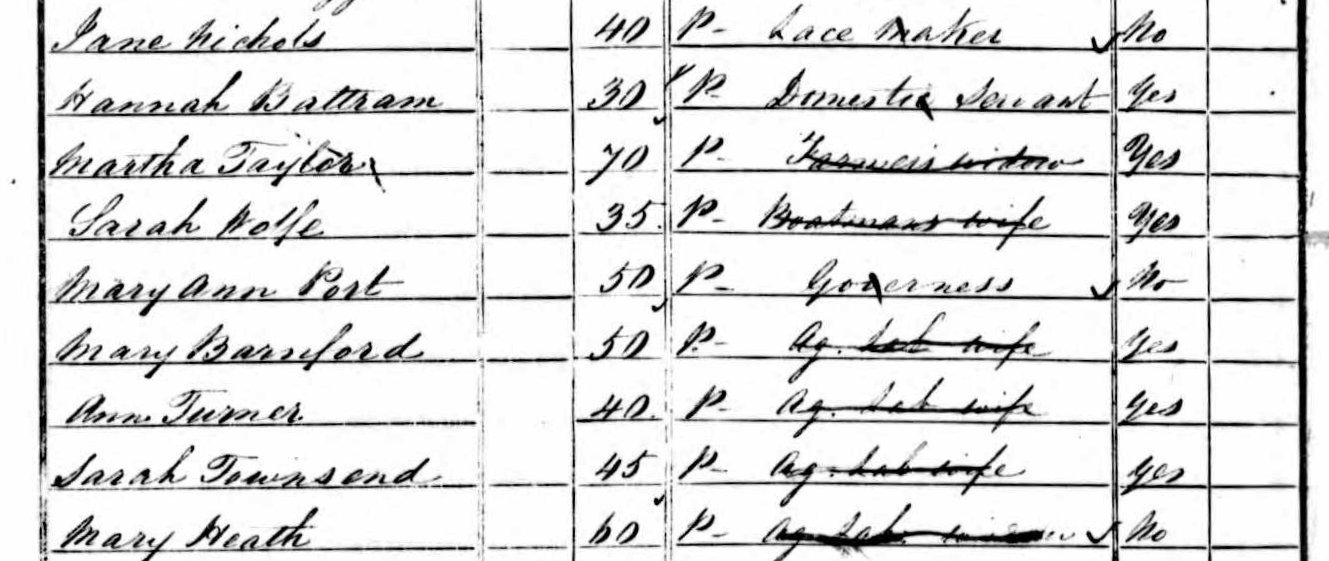 Jane Nichols 40 P- Lace Maker No
Hannah Battram 30 P- Domestic Servant Yes
Martha Taylor 70 P- Farmers widow Yes
Sarah Wolfe 35 P- Boatmans wife Yes
Mary Ann Port 50 P- Governess No
Mary Barnford 50 P- Ag. Lab wife Yes
Ann Turner 40 P- Ag. Lab wife Yes
Sarah Townsend 45 P- Ag. Lab wife Yes
Mary Heath 60 P- Ag Lab No